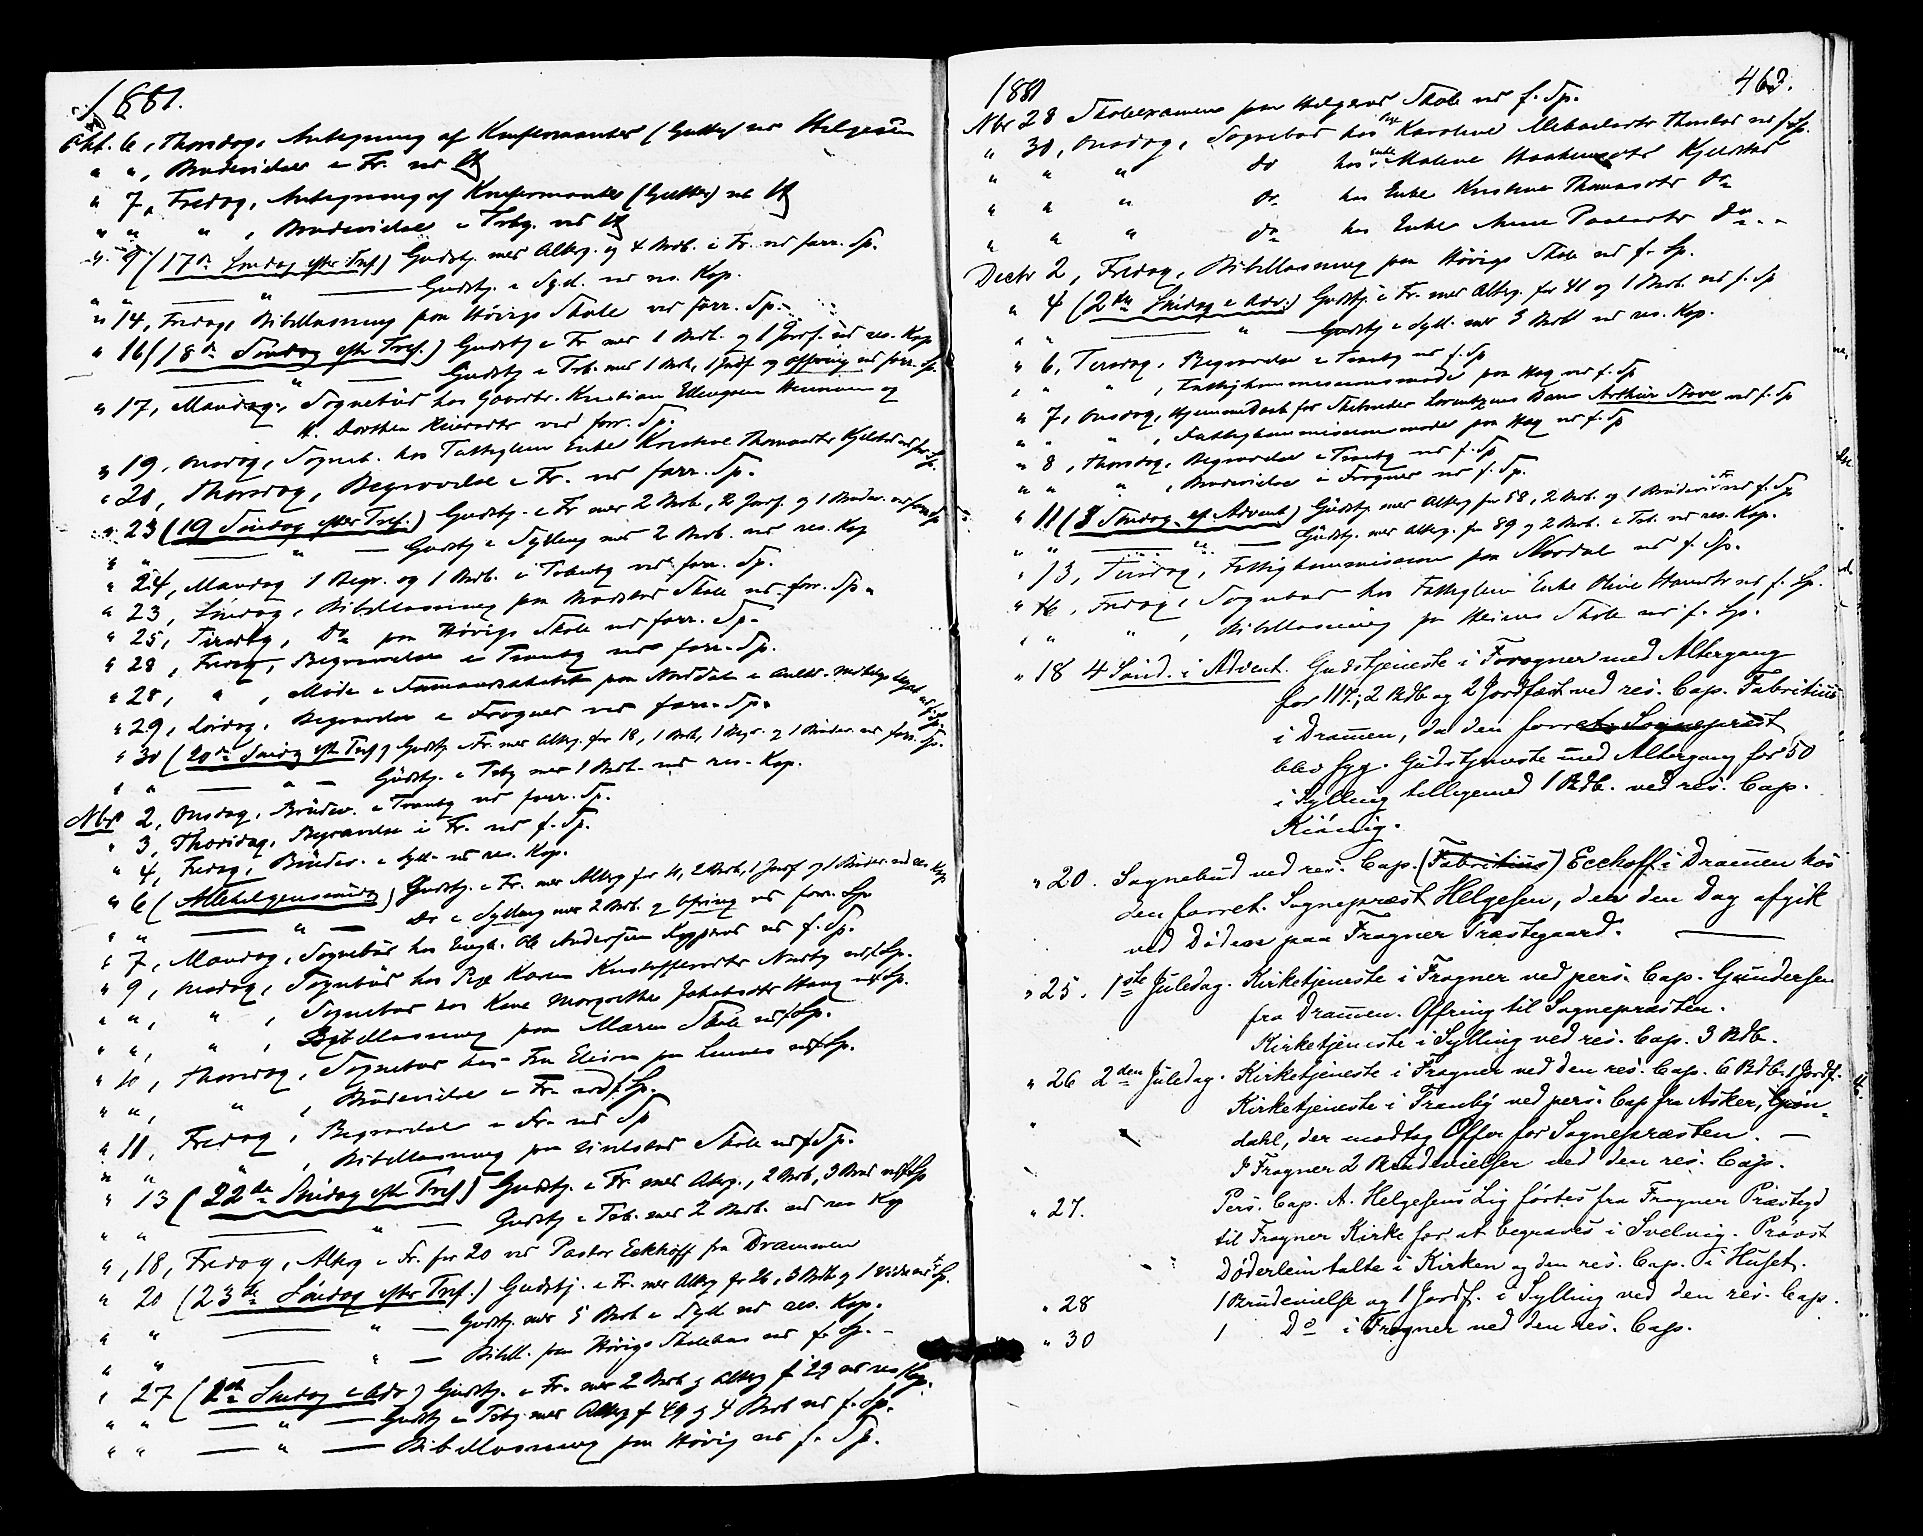 1881.
Okt. 6, Thorsdag, Antegning af Konfirmanter (Gutter) ved Helgesen
" ", Brudevielse i Fr. ved
" 7, Fredag, Antegning af Konfirmanter (Gutter) ved
" " " , Brudevielse i Trbg. ved
" 9 (17de Søndag efter Tref.) Gudstj. med Alterg. og 4 Barb. i Fr. ved forr. Sp.
" " — " — Gudstj. i Syll. ved res. Kap.
" 14, Fredag, Bibellæsning paa Hörigs Skole ved forr. Sp.
" 16 (18de Søndag eft. Tref.) Gudstj. i Fr. med 1 Barb. og 1 Jordf. ved res. Kap
— " — Gudstj. i Trb. med 1 Barb, 1 Jordf. og Offring ved forr. Sp.
" 17, Mandag, Sognebud hos Gaardbr. Kristian Ellingsen og
H. Dorthea ved forr. Sp.
" 19, Onsdag, Sogneb. hos Fattiglem Enke Kristine Thomasdtr Kjelstad ved forr. Sp.
" 20, Thorsdag, Begravelse i Fr. ved forr. Sp.
" 23 (19 Søndag efter Tref.) Gudstj. i Fr. med 2 Barb., 2 Jordf. og 1 Brudev. ved forr. Sp
" " — " — Gudstj. i Sylling med 2 Barb. ved res. Kap
" 24, Mandag 1 Begr. og 1 Barb. i Tranby ved forr. Sp.
" 23, Søndag, Bibellæsning paa Skole ved forr. Sp.
" 25, Tirsdag, Do paa Hörigs Skole ved forr. Sp.
" 28, Fredag, Begravelse i Tranby ved forr. Sp.
" 28, " , Møde i paa Norddal i
" 29, Lördag, Begravelse i Frogner ved forr. Sp.
" 30 (20de Søndag eft. Tref.) Gudstj. i Fr. med Alterg. for 18, 1 Barb, 1 Begr. og 1 Brudev. ved forr. Sp.
" " — " — Gudstj. i Trbg med 1 Barb. ved res. Kap.
Nbr 2, Onsdag, Brudev. i Tranby ved forr. Sp.
" 3, Thorsdag, Begravelse i Fr. ved f. Sp.
" 4, Fredag, Brudev. i Syll. ved res. Kap.
" 6 (Allehelgensøndag) Gudstj. i Fr. med Alterg for 11, 2 Barb, 1 Jordf og 1 Brudev. ved res. Kap.
" " — " — Do i Sylling med 2 Barb. og Ofring ved forr. Sp
" 7, Mandag, Sognebud hos Ungk. Ole Andersen ved f. Sp.
" 9, Onsdag, Sognebud hos Pige Karen Kristoffersdtr ved f. Sp.
" ", " , Sognebud hos Kone Margrethe Jakobsdtr Haug ved f. Sp.
" ", " , Bibellæsning paa Skole ved f. Sp.
" 10, Thorsdag, Sognebud hos Fru paa ved f. Sp.
" ", " , Brudevielse i Fr. ved f. Sp.
" 11, Fredag, Begravelse i Fr. ved Sp
" " " , Bibellæsning paa Skole ved f. Sp.
" 13 (22de Søndag eft. Tref.) Gudstj. i Fr. med Alterg., 2 Barb, 3 Brud ved f. Sp
" " — " — Gudstj. i Trb. med 2 Barb. ved res Kap
" 18, Fredag, Alterg i Fr. for 20 ved Pastor Eckhoff fra Drammen
" 20 (23de Søndag efter Tref.) Gudstj. i Fr. med Alterg for 26, 3 Barb og 1 ved f. Sp.
" " — " — Gudstj. med 5 Barb i Syll ved res. Kap.
" " — " — Bibell. paa Hörigs Skolehus ved f. Sp.
" 27 (1ste Søndag i Adv) Gudstj. i Fr. med 2 Barb og Alterg f. 29 ved res Kap.
" " — " — Gudstj i Trbg med Alterg f 49 og 4 Barb ved f. Sp.
" " — " — Bibellæsning paa Hörig ved f. Sp.
1881 463.
Nbr 28 Skoleexamen paa Helgerud Skole ved f. Sp.
" 30, Onsdag, Sognebud hos Karoline ved f. Sp.
" " " do hos Enke Malene Kjelstad
" " " do hos Enke Kristine Thomasdtr do
" " " do hos Enke Anne Paulsdtr do
Decbr 2, Fredag, Bibellæsning paa Hörigs Skole ved f. Sp.
" 4 (2den Søndag i Adv.) Gudstj. i Fr. med Alterg. for 41 og 1 Barb. ved f. Sp
" " — " — Gudstj i Syll. med 3 Barb ved res. Kap.
" 6, Tirsdag, Begravelse i Tranby ved f. Sp
" " " , Fattigkommissionsmøde paa Hag ved f. Sp
" 7, Onsdag, Hjemmedaab for Lorentzens Barn Arthur ved f. Sp
" " " , Fattigkommissionsmøde paa Hag ved f. Sp
" 8, Thorsdag, Begravelse i Tranby ved f. Sp
" " " , Brudevielse i Frogner ved f. Sp.
" 11 (3 Søndag ef. Advent) Gudstj. med Alterg for 58, 2 Barb. og 1 Brudev. i Fr. ved f. Sp
" " — " — Gudstj. med Alterg. for 89 og 2 Barb. i Trb. ved res. Kap.
" 13, Tirsdag, Fattigkommission paa Nordal ved f. Sp.
" 16, Fredag, Sognebud hos Fattiglem Enke Oline ved f. Sp.
" " " , Bibellæsning paa Heiens Skole ved f. Sp.
" 18 4 Sönd. i Advent. Gudstjeneste i Frogner med Altergang
for 114; 2 Bdb og 2 Jordfæst ved res. Cap. Fabritius
i Dramen, da den forret. Sognepræst
blev syg. Gudstjeneste med Altergang for 50
i Sylling tilligemed 1 Bdb. ved res. Cap.
Kiönig.
" 20. Sognebud ved res. Cap. (Fabritius) Eeckhoff i Dramen hos
den forret. Sognepræst Helgesen, der den Dag afgik
ved Døden paa Frogner Præstegaard. —
" 25. 1ste Juledag. Kirketjeneste i Frogner ved pers. Cap. Gundersen
fra Dramen. Offring til Sognepræsten.
Kirketjeneste i Sylling ved res. Cap. 3 Bdb.
" 26 2den Juledag. Kirketjeneste i Frogner ved den res. Cap. 6 Bdb. 1 Jordf.
" Kirketjeneste i Tranby ved pers. Cap fra Asker, Grön-
dahl, der modtog Offer for Sognepræsten. —
I Frogner 2 Brudevielser ved den res. Cap.
" 27. Pers. Cap. A. Helgesens Lig førtes fra Frogner Præstegd
til Frogner Kirke for at begraves i Svelvig. Provst
Døderlein talte i Kirken og den res. Cap. i Huset.
" 28 1 Brudevielse og 1 Jordf. i Sylling ved den res. Cap.
" 30 1 Do i Frogner ved den res. Cap.